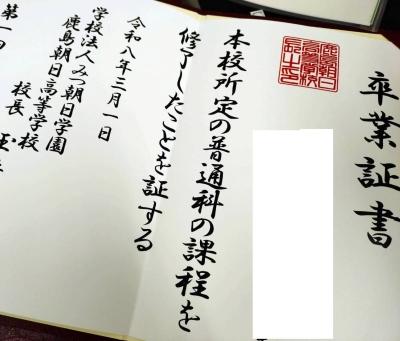 卒業証書
本校所定の普通科の課程を
修了したことを証する
令和八年三月一日
学校法人みつ朝日学園
鹿島朝日高等学校
校長
第一